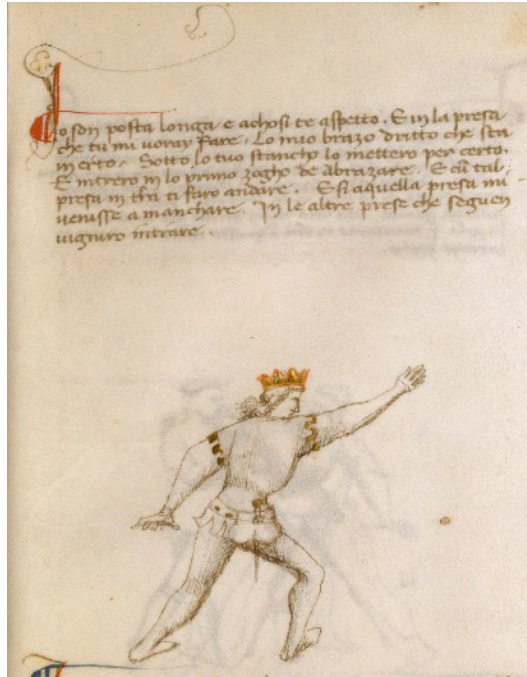 Io son posta longa e achosi te aspetto. E in la presa
che tu mi voray fare. Lo mio brazo dritto che sta
in erto. Sotto lo tuo stancho lo mettero per certo.
E intrero in lo primo zogho de abrazare. E cū tal
presa in tēra ti faro andare. E si aquella presa mi
venisse a manchare. In le altre prese che seguen
vigniro intrare.